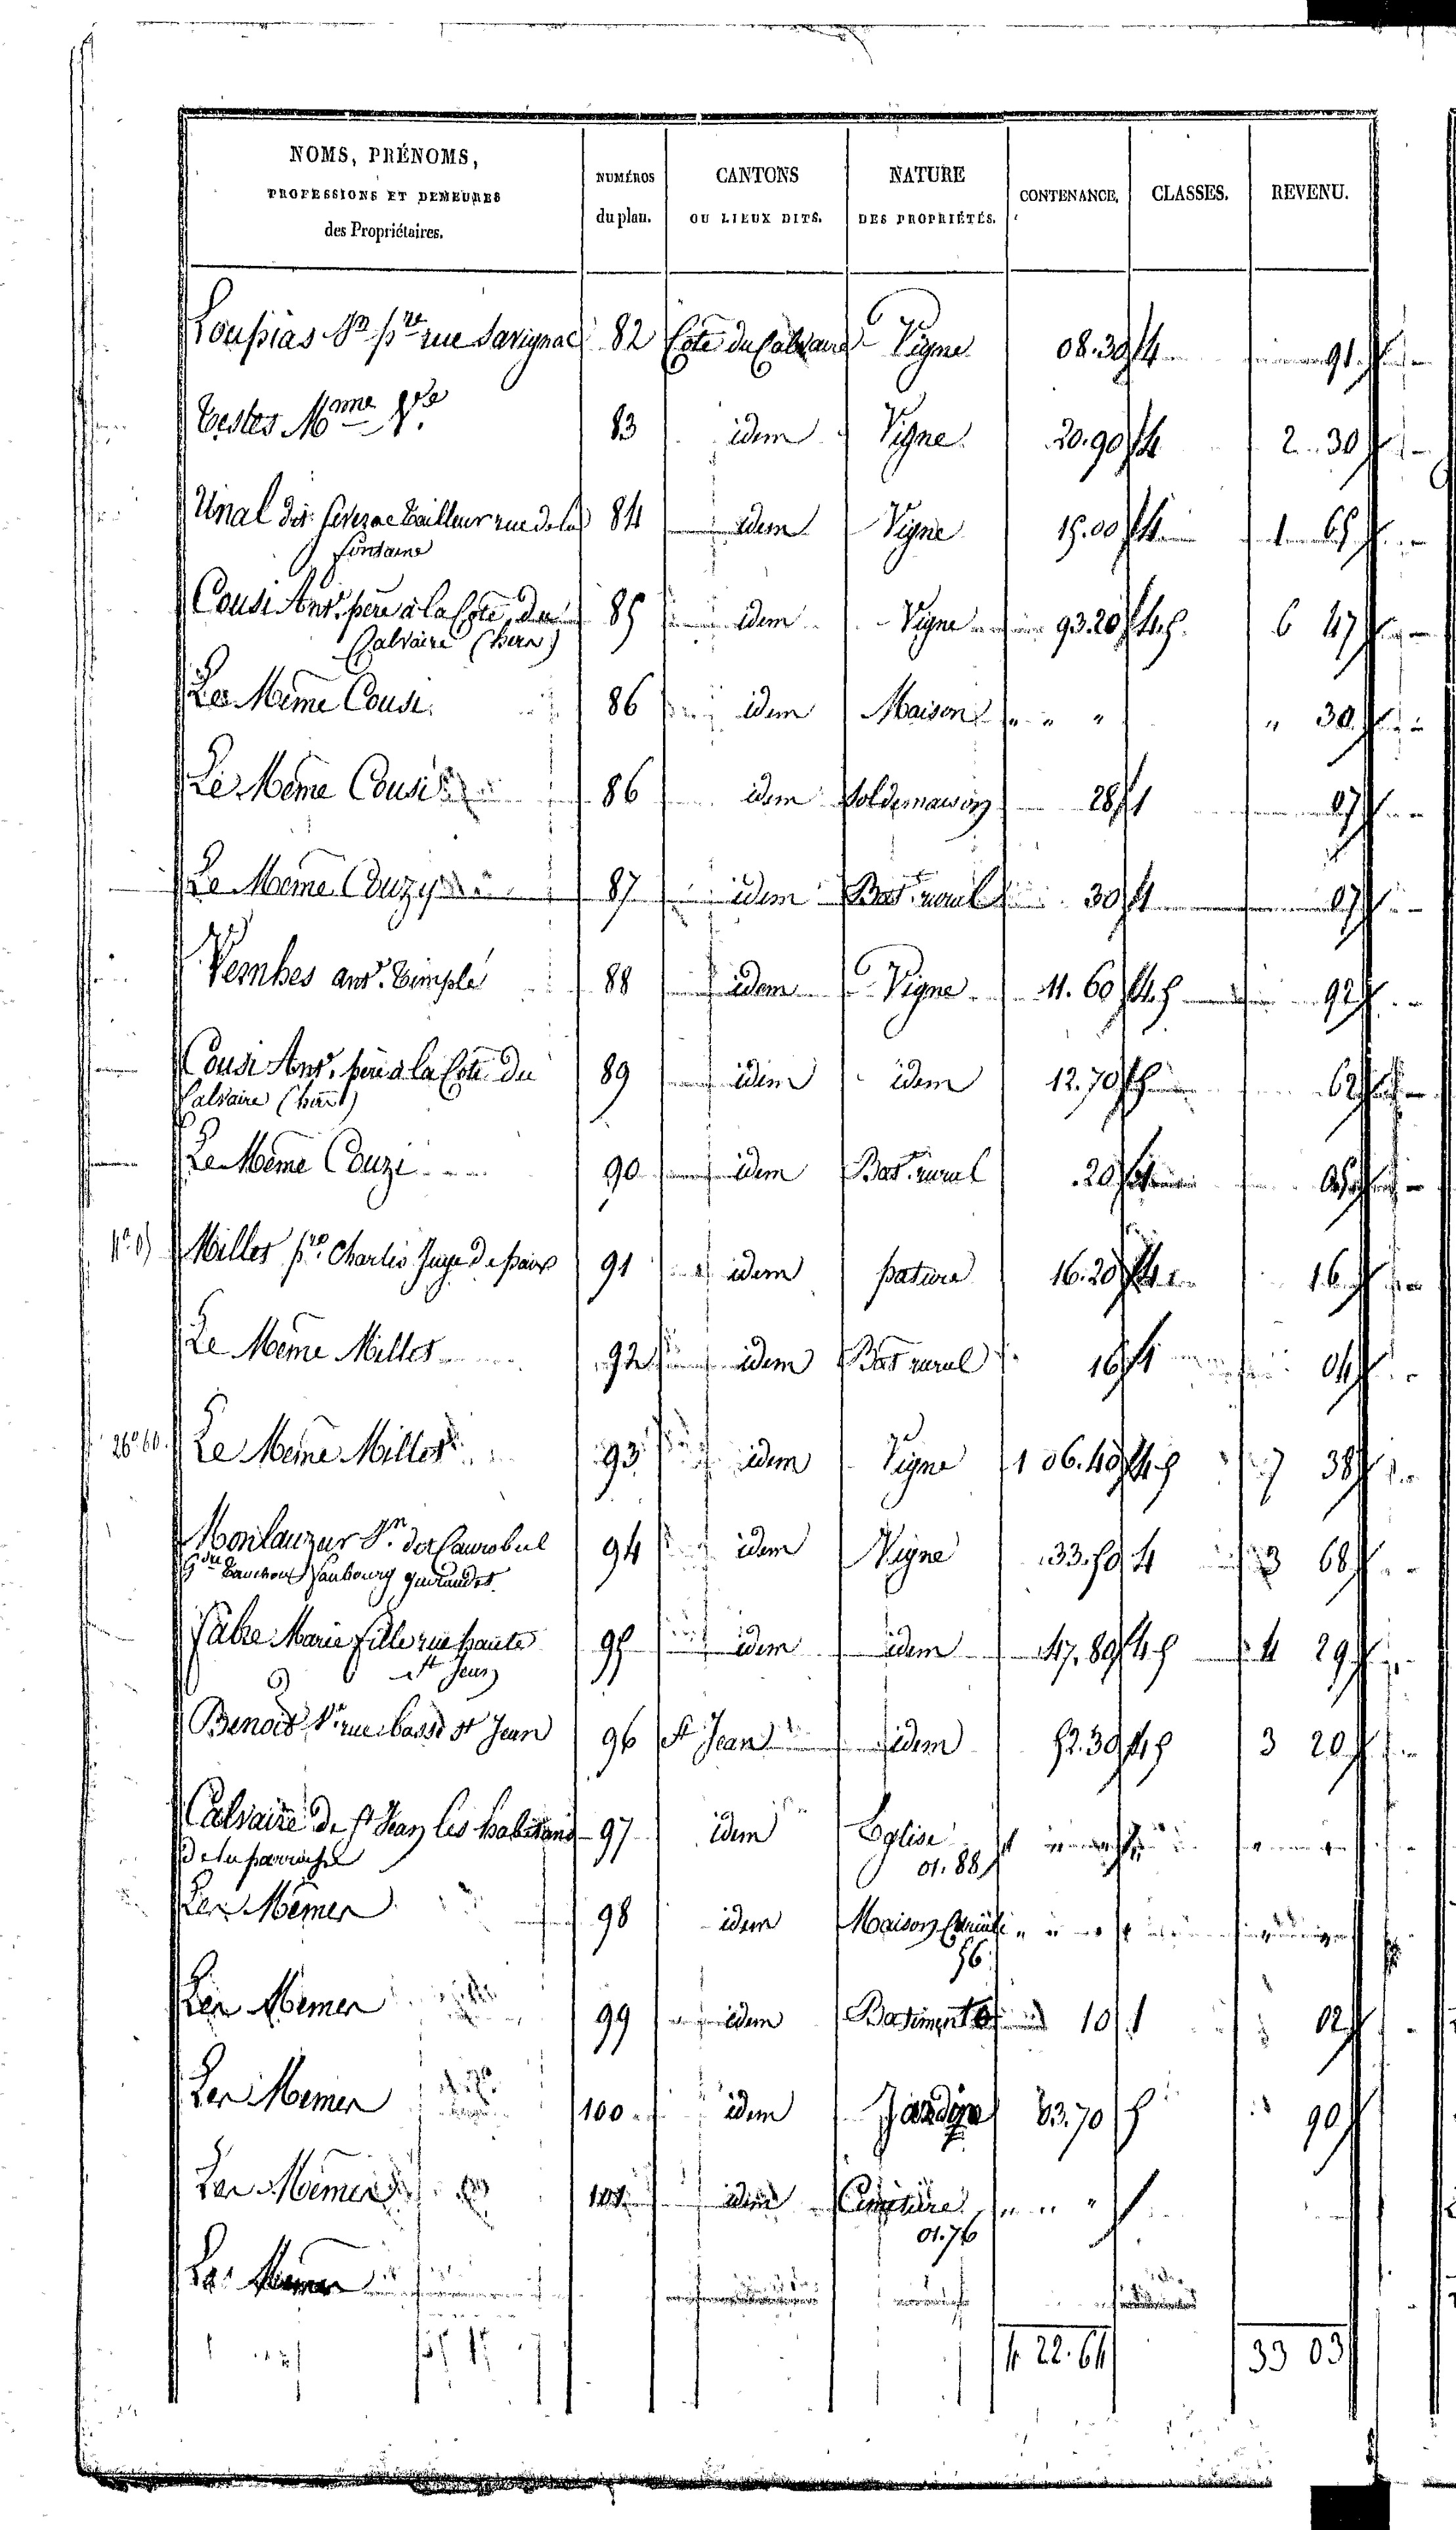 NOMS, PRÉNOMS,
PROFESSIONS ET DEMEURES
des Propriétaires.
NUMÉROS
du plan.
CANTONS
OU LIEUX DITS.
NATURE
DES PROPRIÉTÉS.
CONTENANCE.
CLASSES.
REVENU.
Loupias Jn pre rue Savignac 82 Cote du Calvaire Vigne 08.30 4 91
Testes Mame Ve 83 idem Vigne 20.90 4 2 30
Unal dit Severac tailleur rue de la 84 idem Vigne 15.00 4 1 65
fontaine
Cousi Ant. père à la Cote du 85 idem Vigne 93.20 4.5 6 47
Calvaire
Le Même Cousi 86 idem Maison " " " " 30
Le Même Cousi 86 idem sol de maison 28 1 07
Le Même Couzy 87 idem Bat. rural 30 1 07
Vernhes ant. 88 idem Vigne 11.60 4.5 92
Cousi Ant. père à la Cote du 89 idem idem 12.70 5 62
Calvaire
Le Même Couzi 90 idem Bat. rural 20 1 05
Millet pre Charles Juge de paix 91 idem pature 16.20 4 16
Le Même Millet 92 idem Bat rural 16 1 04
26.60 Le Même Millet 93 idem Vigne 1 06.40 4 5 7 38
Monlauzeur Jn 94 idem Vigne 33.50 4 3 68
faubourg
Fabre Marie fille rue haute 95 idem idem 47.80 4 5 4 29
St Jean
Benoit rue basse St Jean 96 St Jean idem 52.30 4 5 3 20
Calvaire de St Jean les habitans 97 idem Eglise
de la parroisse 01.88
Les Mêmes 98 idem Maison
56
Les Mêmes 99 idem Batiment 10 1 02
Les Mêmes 100 idem Jardin 03.70 5 90
Les Mêmes 101 idem Cimetière " " "
01.76
Les Mêmes
4 22.64 33 03